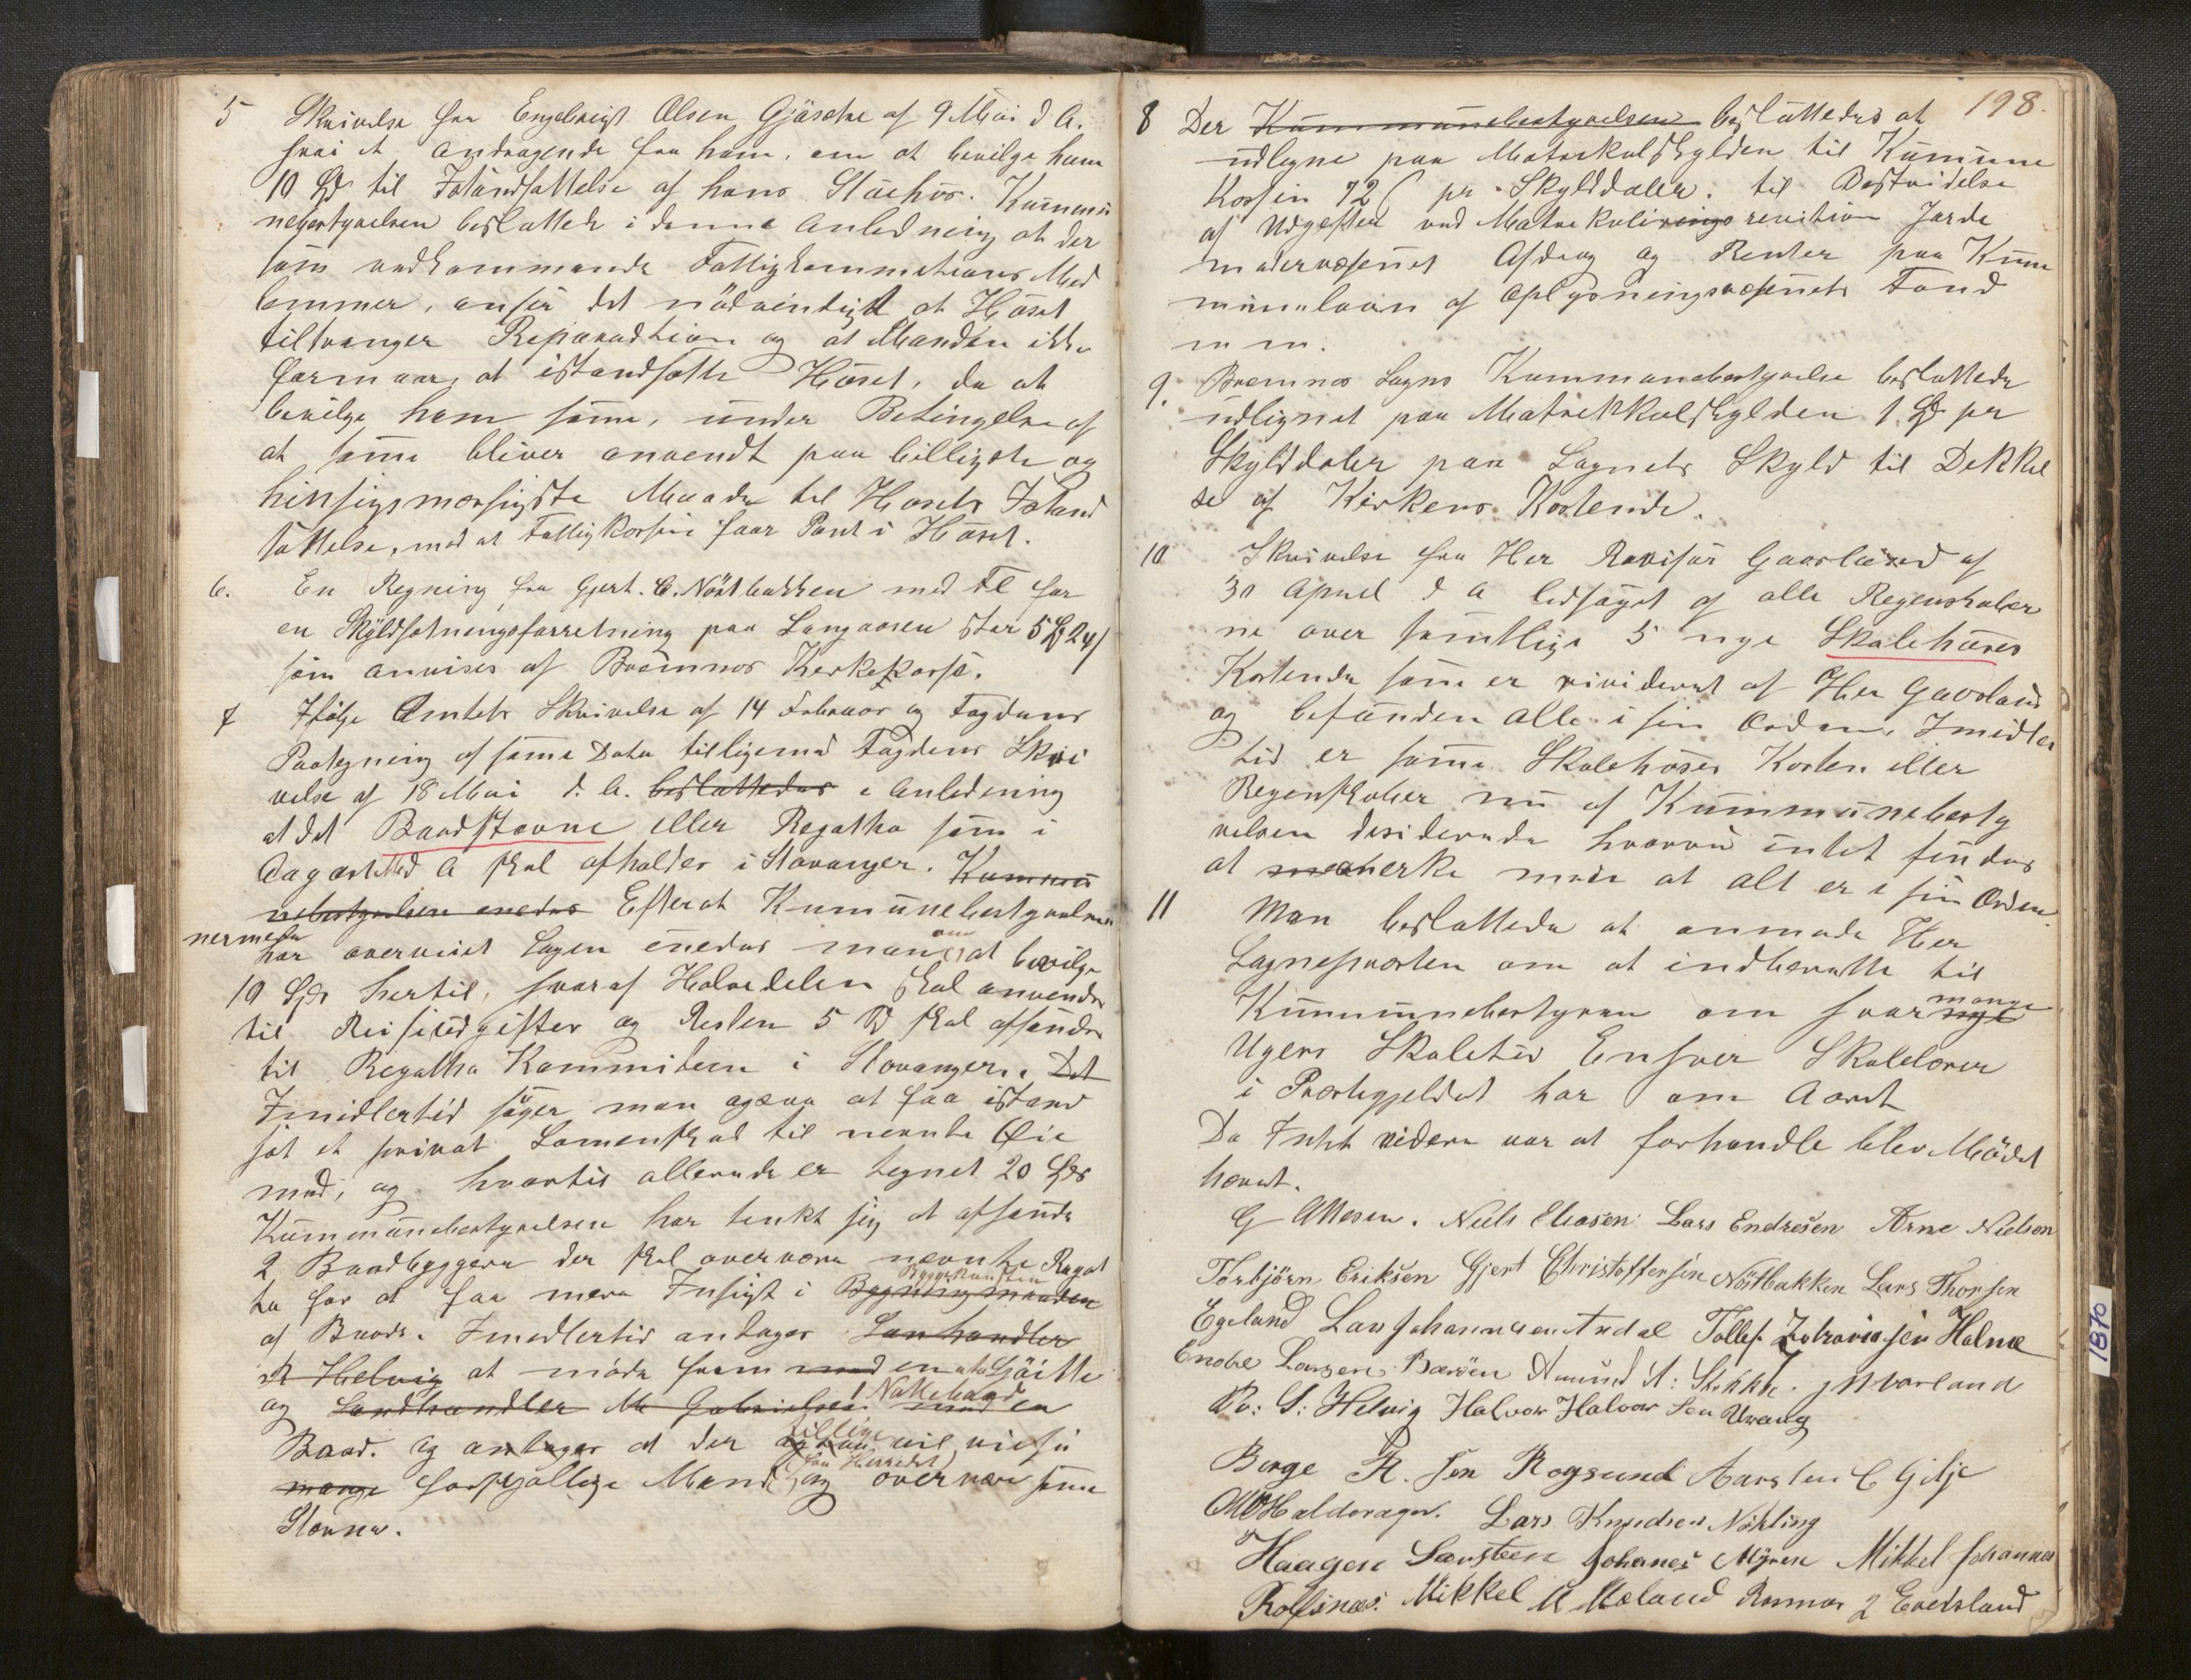 5 Skrivelse fra Engebrigt Olsen Gjäsehe af 9 Mai d A.
hvori et andragende fra ham, om at bevilge ham
10 Spd til Istandsættelse af hans Stuehus. Kummu
nebestyrelsen besluttede i denne Anledning at der
som vedkommende Fattigkommisions Med
lemmer, anser det nödvendigt at Huset
tiltrænger Reparadtion og at Manden ikke
formaar at istandsætte Huset, da at
bevilge ham samme, under Betingelse af
at samme bliver anvendt paa billigste og
hensigsmæssigste Maade til Husets Istand
sættelse, med at Fattigkassen faar Pant i Huset.
6. En Regning fra Gjert. C. Nötbakken med Fl for
en Skyldsætningsforretning paa Langaasen stor 5 Spd 24 s
som anvises af Bræmnes Kirkekasse.
7 Ifölge Amtets Skrivelse af 14 Februar og Fogdens
Paategning af samme Dato tilligemed Fogdens Skri
velse af 18 Mai d. A. besluttedes i Anledning
at det Baadstævne eller Regatha som i
August Md A skal afholdes i Stavanger. Kummu
nebestyrelsen enedes Efterat Kummunebestyrelsen
nermere har overveiet Sagen enedes man om at bevilge
10 Spd hertil, hvoraf Halvedelen skal anvendes
til Reiseudgifter og Resten 5 Spd skal afsendes
til Regatha Kommiteen i Stavanger. Det
Imidlertid söger man ogsaa at faa istand
sat et privat Samenskud til nevnte Öie
med, og hvortil allerede er tegnet 20 Spd
Kummunebestyrelsen har tenkt sig at afsende
2 Baadbyggere der skal overvære nævnte Regat
ha for at faa mere Indsigt i Bygningmaaden Byggekunsten
af Baade. Imedlertid antages Lanhandler
R Helvig at möde frem med en ..
og Landhandler M Gabrielsen med en
Baad. og antages at der ogsaa tillige vil reise
mange forskjellige Mænd fra Herredet og overvære samme
Stævne.
198.
8 Der Kummunebestyrelsen besluttedes at
udligne paa Matrikulskylden til Kummune
Kassen 72 s pr. Skylddaler. til Bestridelse
af Udgifter ved Matrikuleringsrevition Jorde
modervæsenet Afdrag og Renter paa Kum
munelaan af Oplysningsvæsenets Fond
m m.
9. Bræmnes Sogns Kummunebestyrelse besluttede
udlignet paa Matrikkulskylden 1 Spd pr
Skylddaler paa Sognets Skyld til Dekkel
se af Kirkens Kostende.
10 Skrivelse fra Her Revisor Gaasland af
30 April d A ledsaget af alle Regenskaber
ne over samtlige 5 nye Skolehuses
Kostende som er revideret af Her Gaasland
og befunden alle i sin Orden, Imidler
tid er samme Skolehuses Kosten eller
Regenskaber nu af Kummunebesty
relsen desiderede hvorved intet findes
at merke men at alt er i sin Orden.
11 Man besluttede at anmode Her
Sognepresten om at indberette til
Kummunebestyren om hvor mange
Ugers Skoletid Enhver Skolelærer
i Prestegjeldet har om Aaret
Da Intet videre var at forhandle blev Mödet
hævet.
G Attesen. Niels Eliasen Lars Endresen Arne Nielsen
Torbjörn Eriksen Gjert Christoffersen Nötbakken Lars Thorsen
Egeland Lars Johannesen Andal Tollef Zakariasen Holme
Endre Larsen Bæröen Amund A: Stokke. J M Vorland
Pv: S: Helvig Halvor Halvorsen Urang
Børge R. sen Rogsund Aarsten C Gilje
M O Halderager. Lars Knudsen Nökling
Haagen Larssteen Johanes Myren Mikkel Johannes
Rolfsnæs. Mikkel M Mæland Rasmus J Evedsland
1870